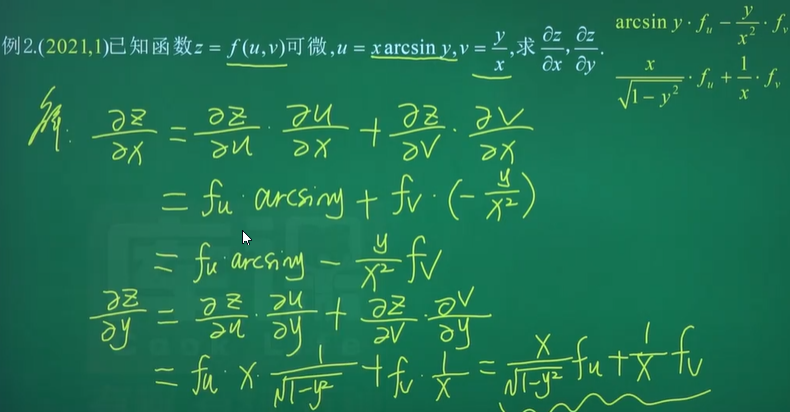 例2.(2021,1)已知函数z = f(u,v)可微,u = x arcsin y,v = y/x,求 ∂z/∂x, ∂z/∂y.
arcsin y · f_u − y/x² · f_v
x/√(1−y²) · f_u + 1/x · f_v
解: ∂z/∂x = ∂z/∂u · ∂u/∂x + ∂z/∂v · ∂v/∂x
= f_u · arcsiny + f_v · (−y/x²)
= f_u · arcsiny − y/x² f_v
∂z/∂y = ∂z/∂u · ∂u/∂y + ∂z/∂v · ∂v/∂y
= f_u · x · 1/√(1−y²) + f_v · 1/x = x/√(1−y²) f_u + 1/x f_v